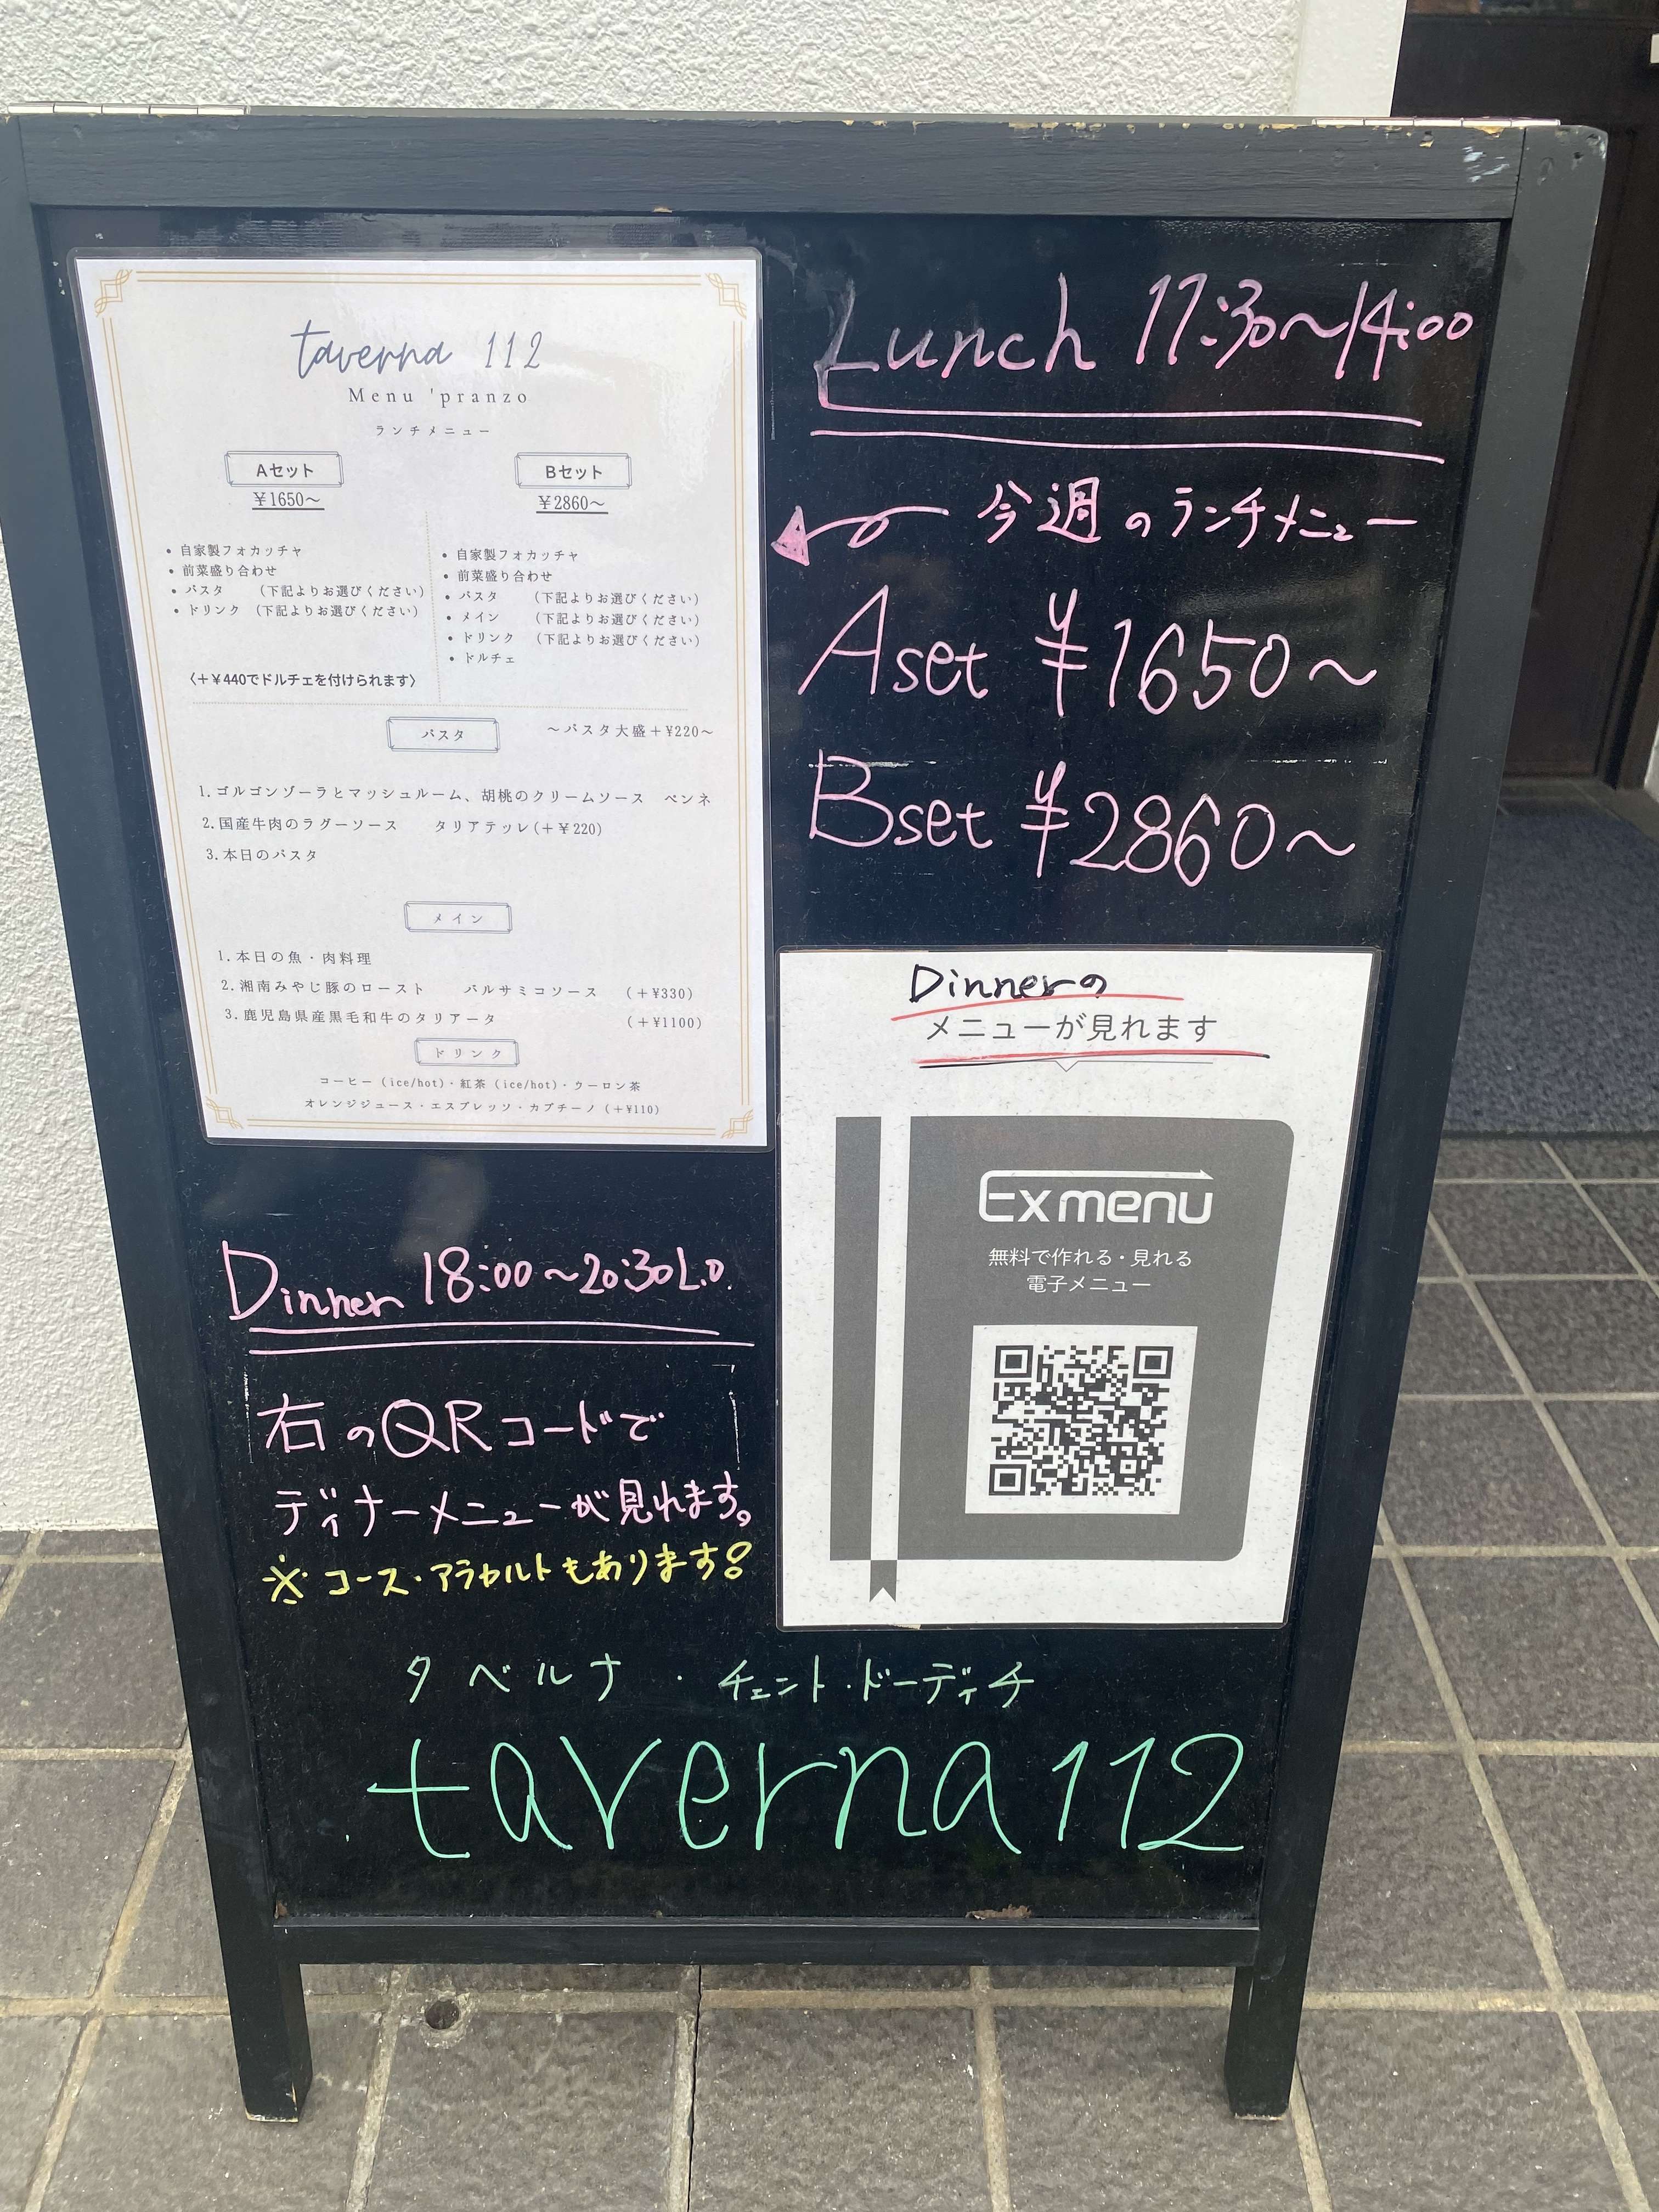 taverna 112
Menu 'pranzo
ランチメニュー
Aセット
￥1650～
• 自家製フォカッチャ
• 前菜盛り合わせ
• パスタ （下記よりお選びください）
• ドリンク （下記よりお選びください）
〈＋￥440でドルチェを付けられます〉
Bセット
￥2860～
• 自家製フォカッチャ
• 前菜盛り合わせ
• パスタ （下記よりお選びください）
• メイン （下記よりお選びください）
• ドリンク （下記よりお選びください）
• ドルチェ
パスタ ～パスタ大盛＋¥220～
1.ゴルゴンゾーラとマッシュルーム、胡桃のクリームソース ペンネ
2.国産牛肉のラグーソース タリアテッレ(＋￥220)
3.本日のパスタ
メイン
1.本日の魚・肉料理
2.湘南みやじ豚のロースト バルサミコソース （＋¥330）
3.鹿児島県産黒毛和牛のタリアータ （＋¥1100）
ドリンク
コーヒー（ice/hot）・紅茶（ice/hot）・ウーロン茶
オレンジジュース・エスプレッソ・カプチーノ（＋¥110）
Lunch 11:30～14:00
今週のランチメニュー
Aset ¥1650～
Bset ¥2860～
Dinnerの
メニューが見れます
Exmenu
無料で作れる・見れる
電子メニュー
Dinner 18:00～20:30L.O.
右のQRコードで
ディナーメニューが見れます。
※コース・アラカルトもあります!
タベルナ・チェント・ドーディチ
taverna112